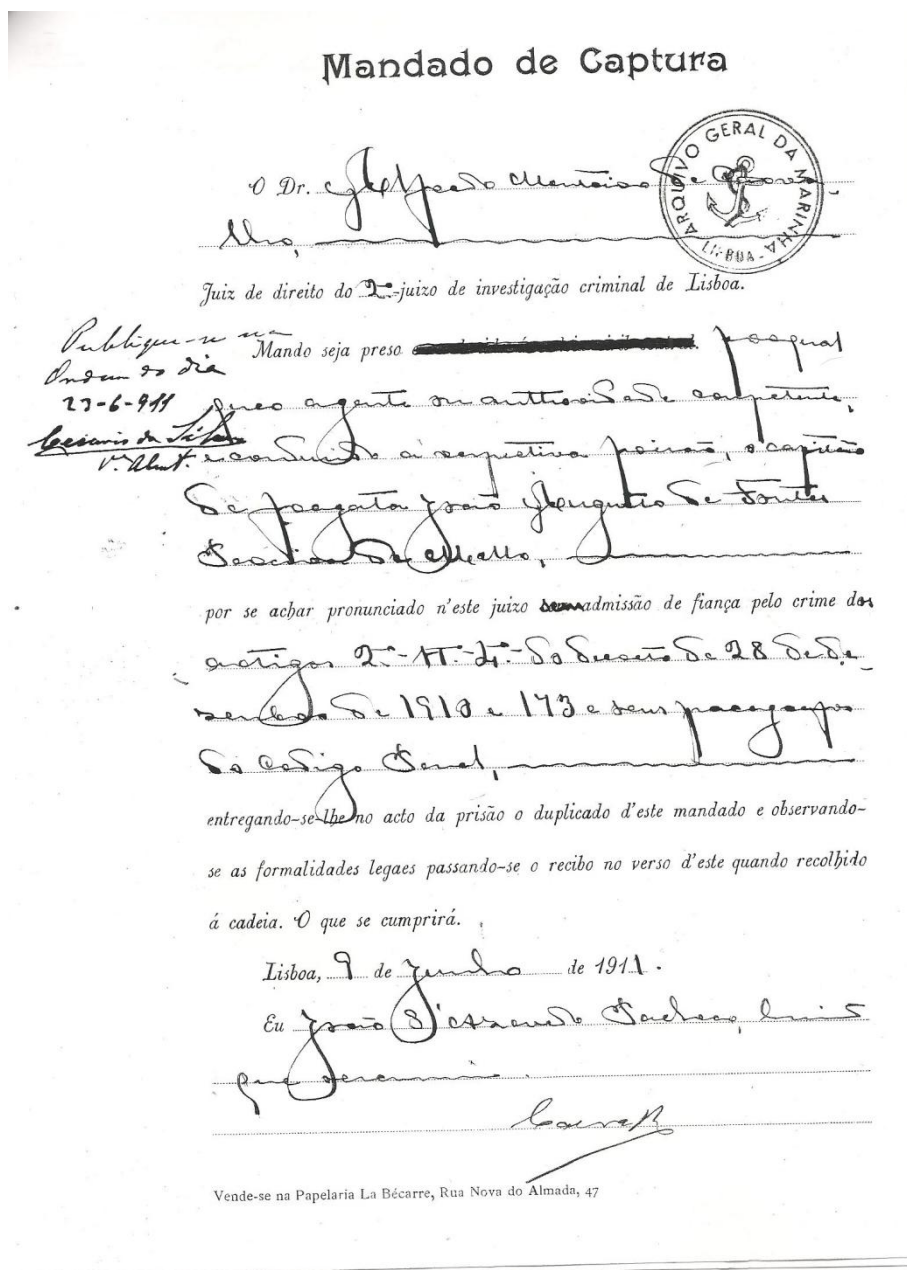 Mandado de Captura
ARQUIVO GERAL DA MARINHA
LISBOA
O Dr.
Juiz de direito do 2.º juizo de investigação criminal de Lisboa.
Publique-se na
Ordem do dia
23-6-911
da Silva
V. Almt.
Mando seja preso por qual
quer agente ou authoridade competente,
e conduzido á respectiva prisão, o capitão
de fragata João Augusto de Fontes
Pereira de Mello,
por se achar pronunciado n'este juizo admissão de fiança pelo crime dos
artigos 2.º do decreto de 28 de De-
zembro de 1910 e 173 e seus paragraphos
do Codigo Penal,
entregando-se-lhe no acto da prisão o duplicado d'este mandado e observando-
se as formalidades legaes passando-se o recibo no verso d'este quando recolhido
á cadeia. O que se cumprirá.
Lisboa, 9 de Junho de 1911.
Eu João d'Azevedo Pacheco,
que
Vende-se na Papelaria La Bécarre, Rua Nova do Almada, 47